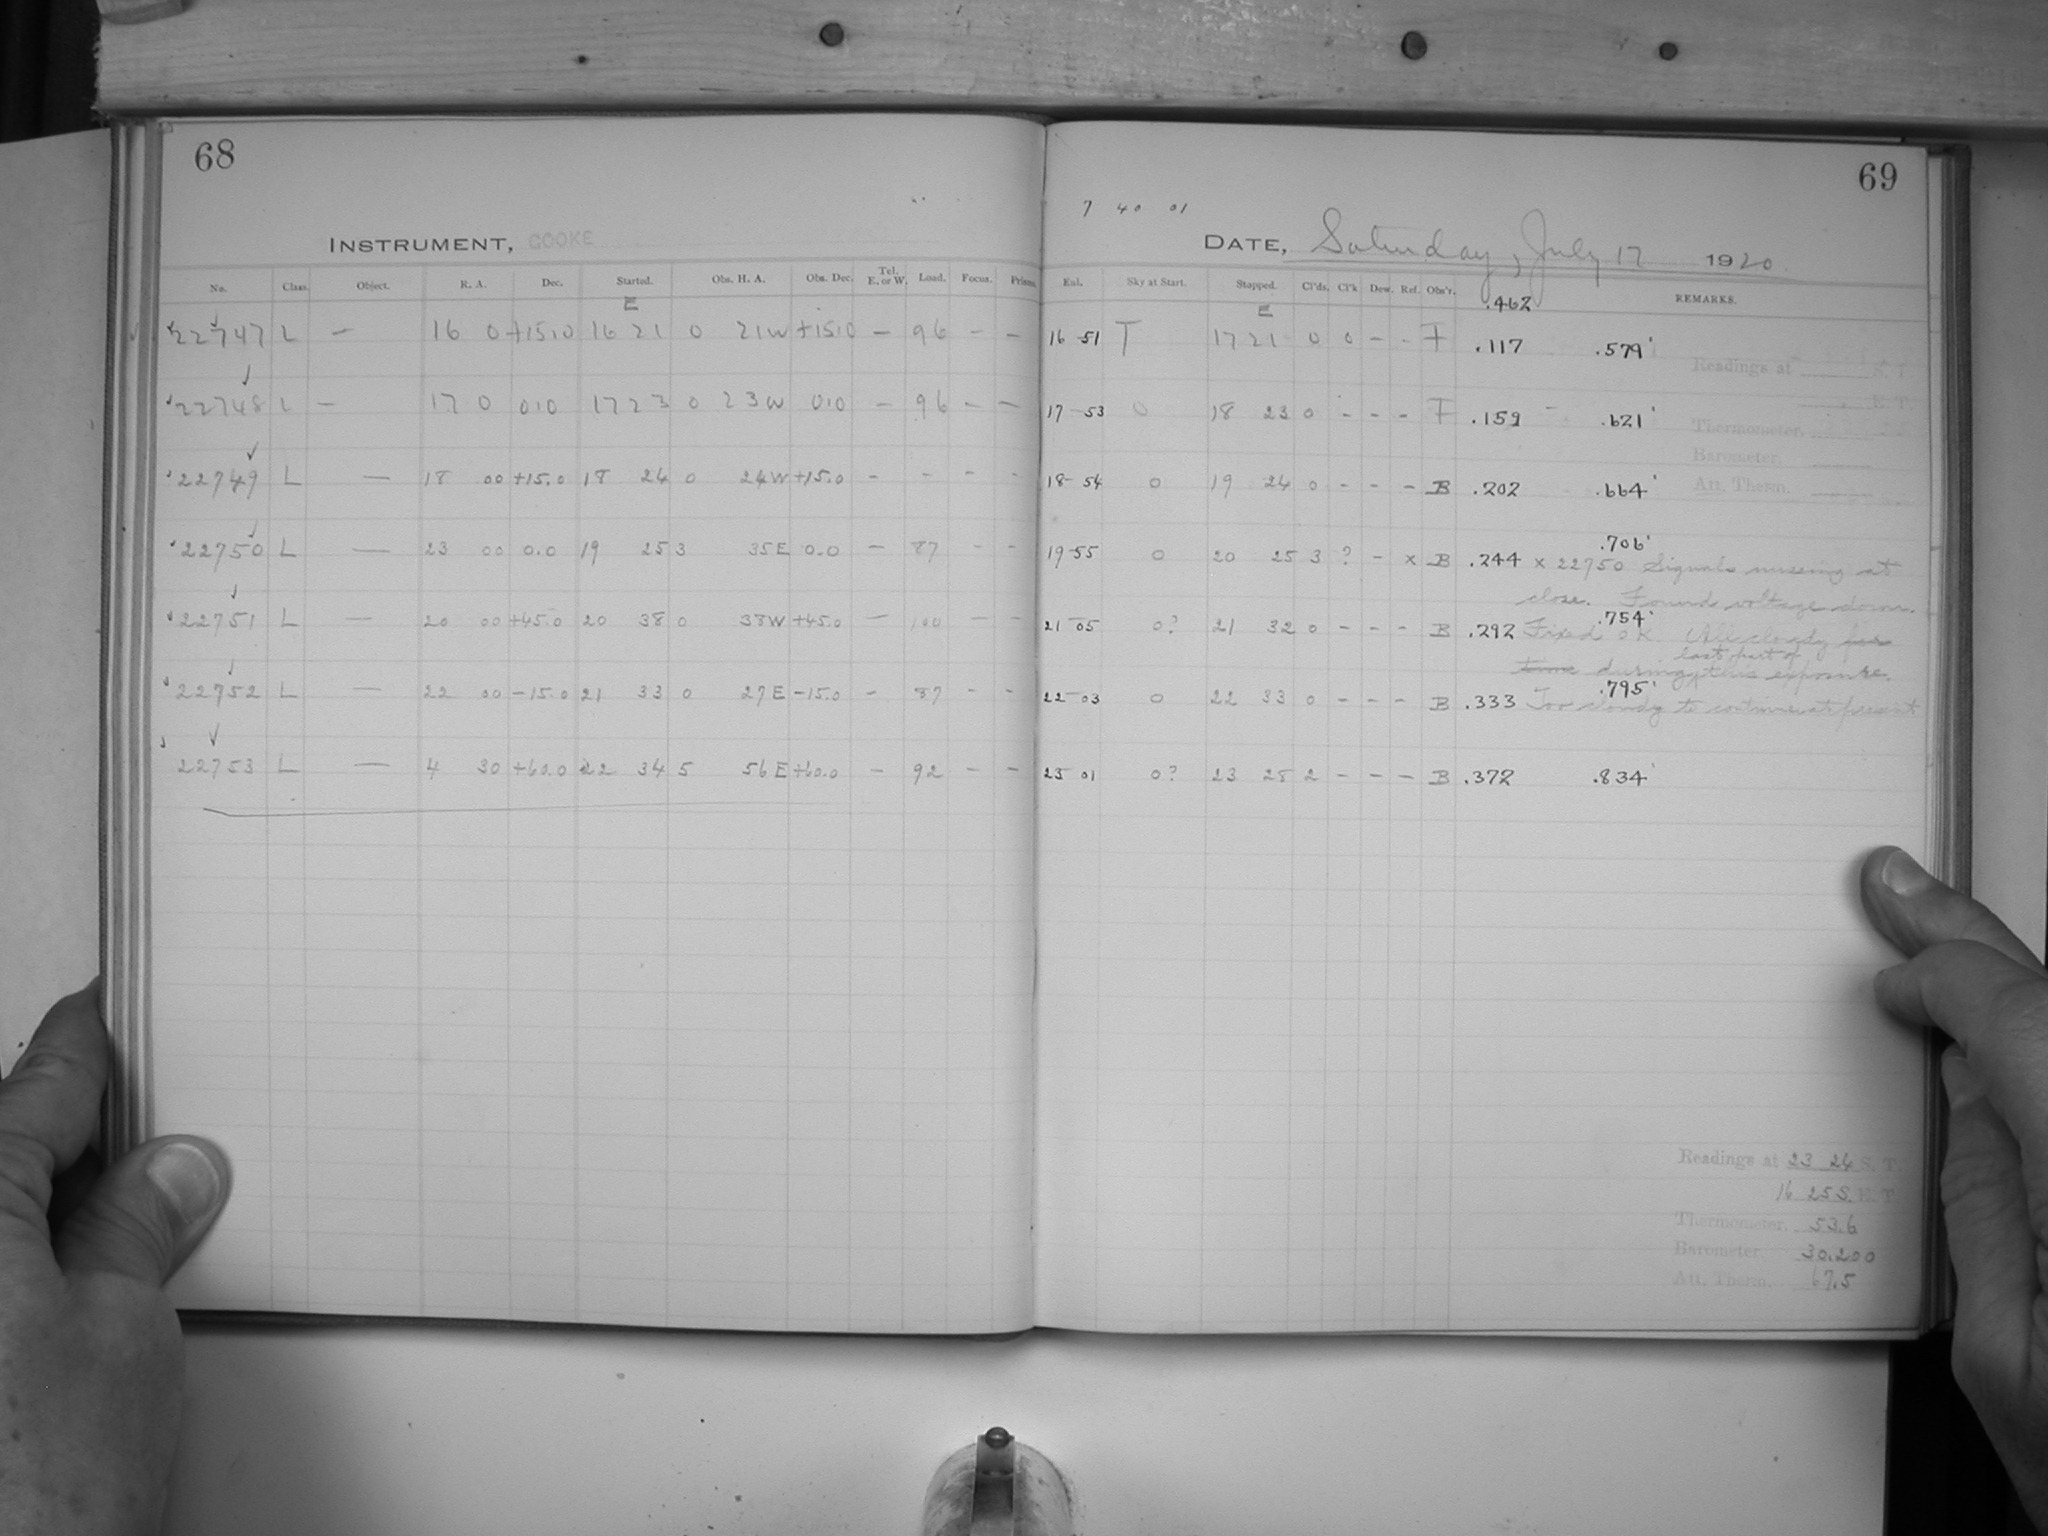 68
69
7 40 01
INSTRUMENT, COOKE
DATE, Saturday, July 17 1920
No. Class. Object. R. A. Dec. Started. Obs. H. A. Obs. Dec. Tel. E. or W. Load. Focus. Prism. Eal. Sky at Start. Stopped. Cl'ds. Cl'k Dew. Ref. Obs'r. REMARKS.
E E .462
22747 L — 16 0 +15.0 16 21 0 21W +15.0 — 96 — — 16 51 T 17 21 0 0 — - F .117 .579
22748 L — 17 0 0.0 17 23 0 23W 0.0 — 96 — — 17 53 0 18 23 0 - - - F .159 .621
22749 L — 18 00 +15.0 18 24 0 24W +15.0 - - - - 18 54 0 19 24 0 - - - B .202 .664
22750 L — 23 00 0.0 19 25 3 35E 0.0 — 87 - - 19 55 0 20 25 3 ? - x B .244 .706
x 22750 Signals missing at
close. Found voltage down.
22751 L — 20 00 +45.0 20 38 0 38W +45.0 — 100 - - 21 05 0? 21 32 0 - - - B .292 .754
Fixed OK. All cloudy for
time during last part of this exposure.
22752 L — 22 00 -15.0 21 33 0 27E -15.0 - 87 - - 22 03 0 22 33 0 - - - B .333 .795
Too cloudy to continue at present
22753 L — 4 30 +60.0 22 34 5 56E +60.0 - 92 - - 23 01 0? 23 28 2 - - - B .372 .834
Readings at S. T.
E. T.
Thermometer.
Barometer.
Att. Therm.
Readings at 23 24 S. T.
16 25 S. E. T.
Thermometer. 53.6
Barometer. 30.200
Att. Therm. 67.5